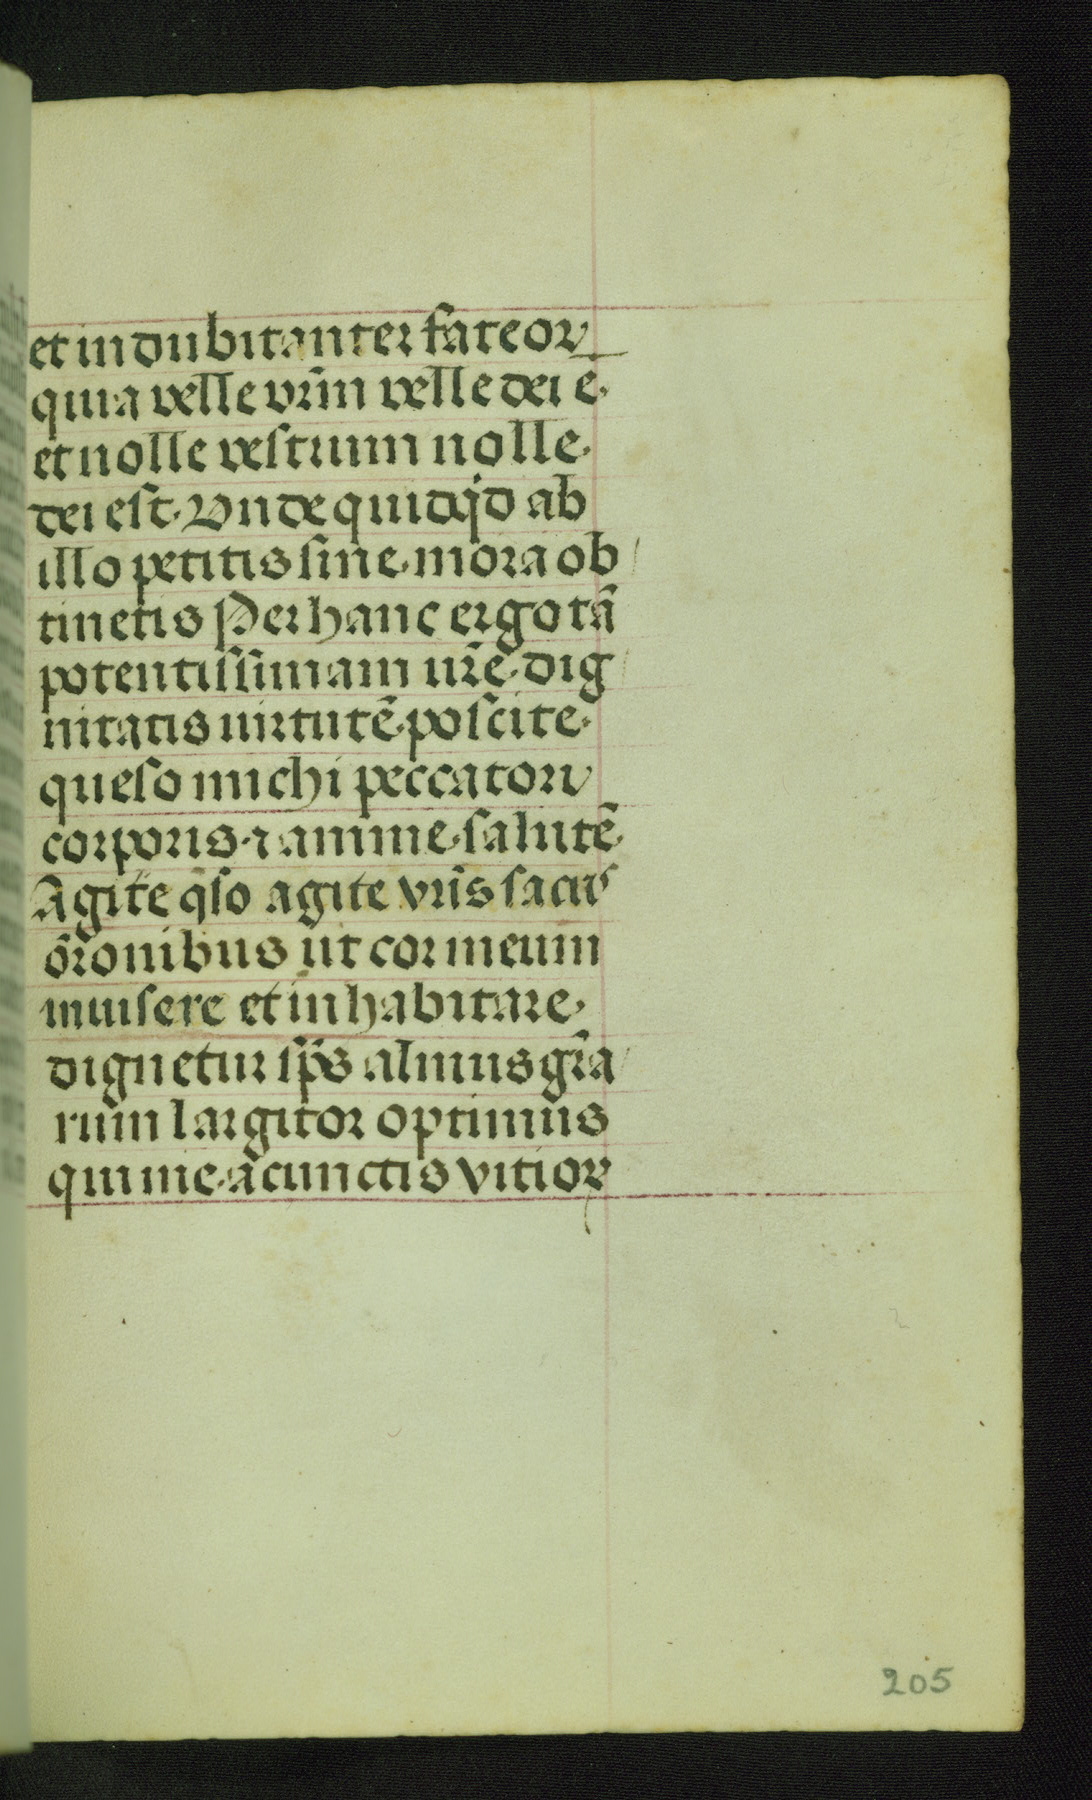 et indubitanter fateor
quia velle vrm̄ velle dei ē.
et nolle vestrum nolle.
dei est. Vnde quidq̇d ab
illo petitis sine. mora ob
tinetis Per hanc ergo tā
potentissimam ur̄e. dig
nitatis uirtutē. poscite.
queso michi peccatori
corporis. ⁊ anime. salutē.
Agite q̇so agite vrīs sacris
or̄onibus ut cor meum
inuisere et inhabitare.
dignetur sp̄s almus gr̄a
rum largitor optimus
qui me. a cunctis vitioꝝ
205